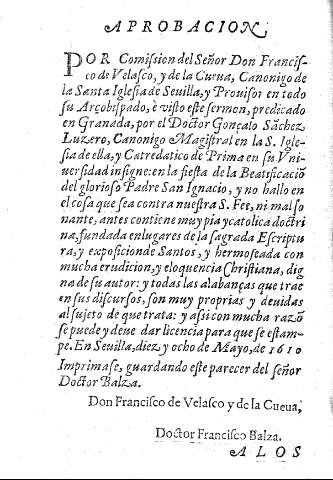 APROBACION
POR Comission del Señor Don Francis-
co de Velasco, y de la Cueua, Canonigo de
la Santa Iglesia de Seuilla, y Prouisor en todo
su Arçobispado, è visto este sermon, predicado
en Granada, por el Doctor Gonçalo Sãchez
Luzero, Canonigo Magistral en la S. Igle-
sia de ella, y Catredatico de Prima en su Vni-
uersidad insigne: en la fiesta de la Beatificaciõ
del glorioso Padre San Ignacio, y no hallo en
el cosa que sea contra nuestra S. Fee, ni mal so
nante, antes contiene muy pia y catolica doctri
na, fundada en lugares de la sagrada Escriptu
ra, y exposicion de Santos, y hermoseada con
mucha erudicion, y eloquencia Christiana, dig
na de su autor: y todas las alabanças que trae
en sus discursos, son muy proprias y deuidas
al sujeto de que trata: y assi con mucha razõ
se puede y deue dar licencia para que se estam-
pe. En Seuilla, diez y ocho de Mayo, de 1610
Imprimase, guardando este parecer del señor
Doctor Balza.
Don Francisco de Velasco y de la Cueua,
Doctor Francisco Balza.
A LOS